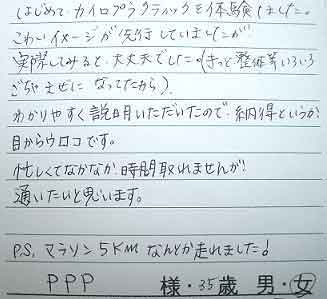 はじめて カイロプラクティックを体験しました。
こわいイメージが先行していましたが
実際してみると、大丈夫でした。(きっと整体等いろいろ
ごちゃまぜに なってたから)
わかりやすく説明いただいたので、納得というか
目からウロコです。
忙しくてなかなか時間取れませんが
通いたいと思います。
P.S. マラソン5KMなんとか走れました!
PPP 様・35歳 男・女